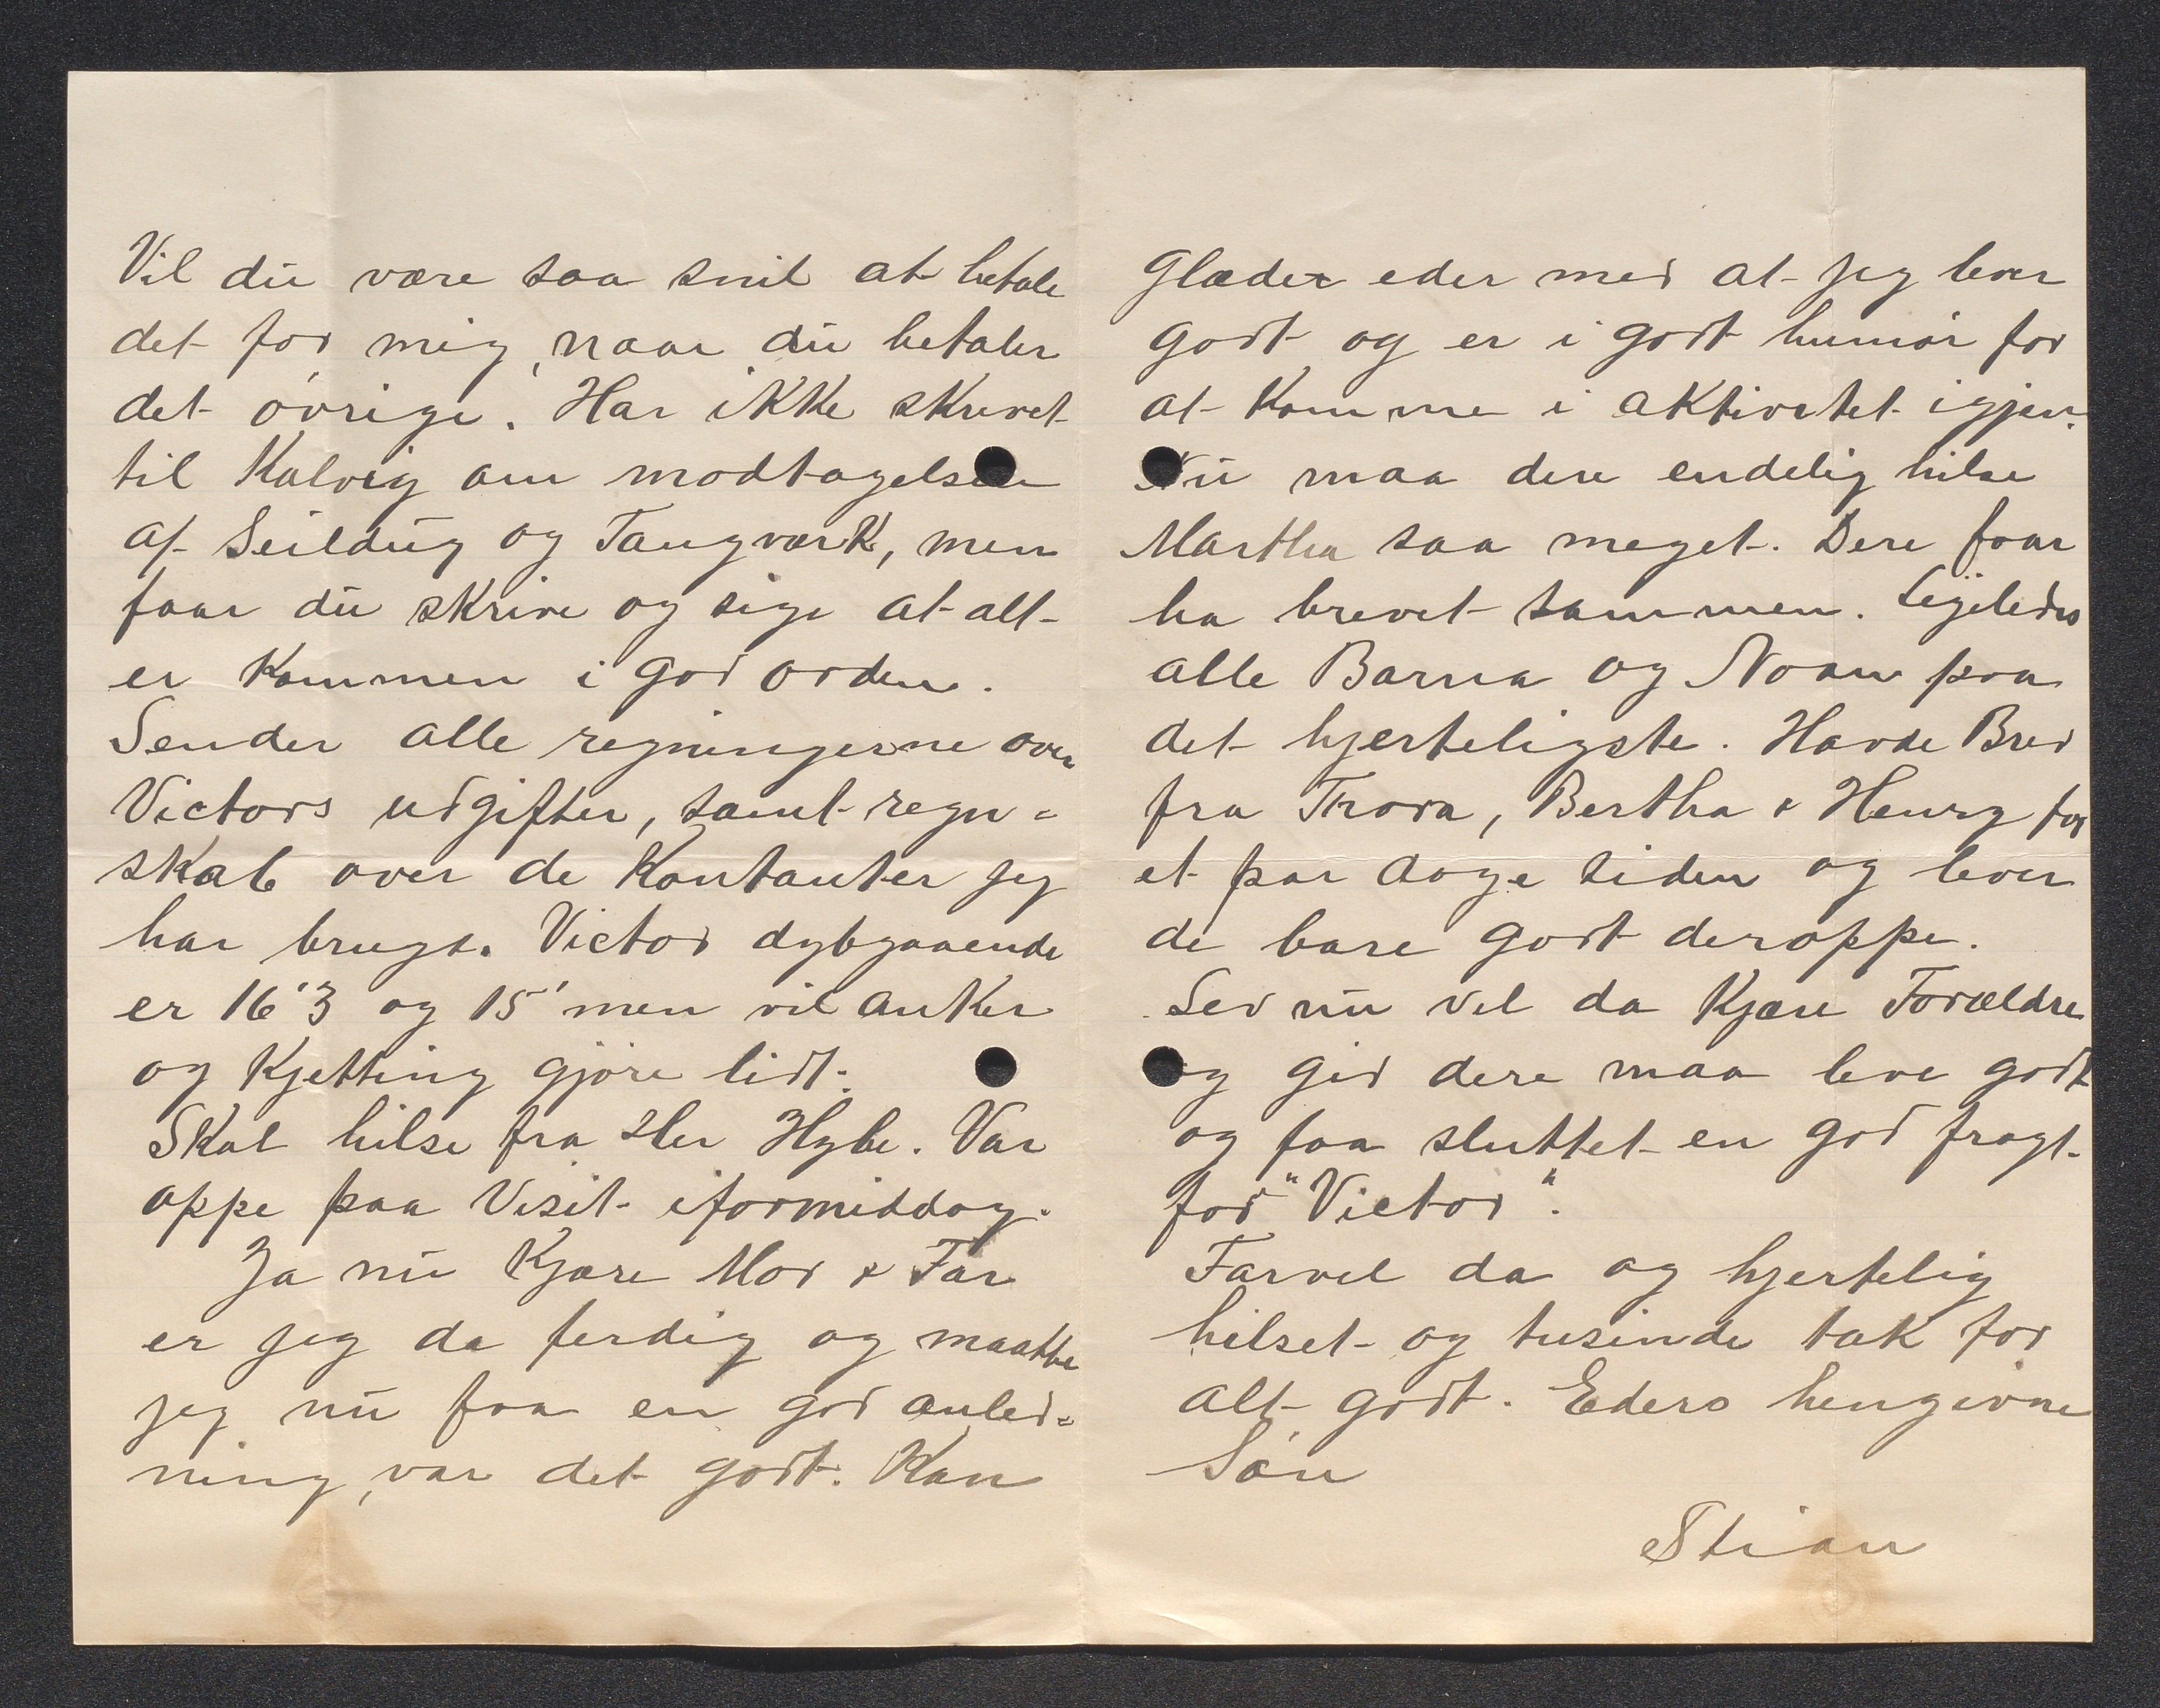 Vil du være saa snil at betale
det for mig, naar du betaler
det øvrige. Har ikke skrevet
til Kalvig om modtagelsen
af Seildug og Taugværk, men
faar du skrive og sige at alt
er kommen i god orden.
Sender alle regningerne over
Victors udgifter, samt regn=
skab over de Kontanter jeg
har brugt. Victor dybgaaende
er 16'3 og 15' men vil anker
og Kjetting gjøre lidt.
Skal hilse fra Her Hybe. Var
oppe paa Visit iformiddag.
Ja nu Kjære Mor & Far
er jeg da ferdig og maatte
jeg nu faa en god anled=
ning, var det godt. Kan
Glæder eder med at jeg lever
godt og er i godt humør for
at komme i aktivitet igjen.
Nu maa dere endelig hilse
Martha saa meget. Dere faar
ha brevet sammen. Ligeledes
alle Barna og Noam paa
det hjerteligste. Havde Brev
fra Thora, Bertha & Henry for
et par dage siden og lever
de bare godt deroppe.
Lev nu vel da Kjære Forældre
og gid dere maa leve godt
og faa sluttet en god fragt
for "Victor".
Farvel da og hjertelig
hilset og tusinde tak for
alt godt. Eders hengivne
Søn
Stian